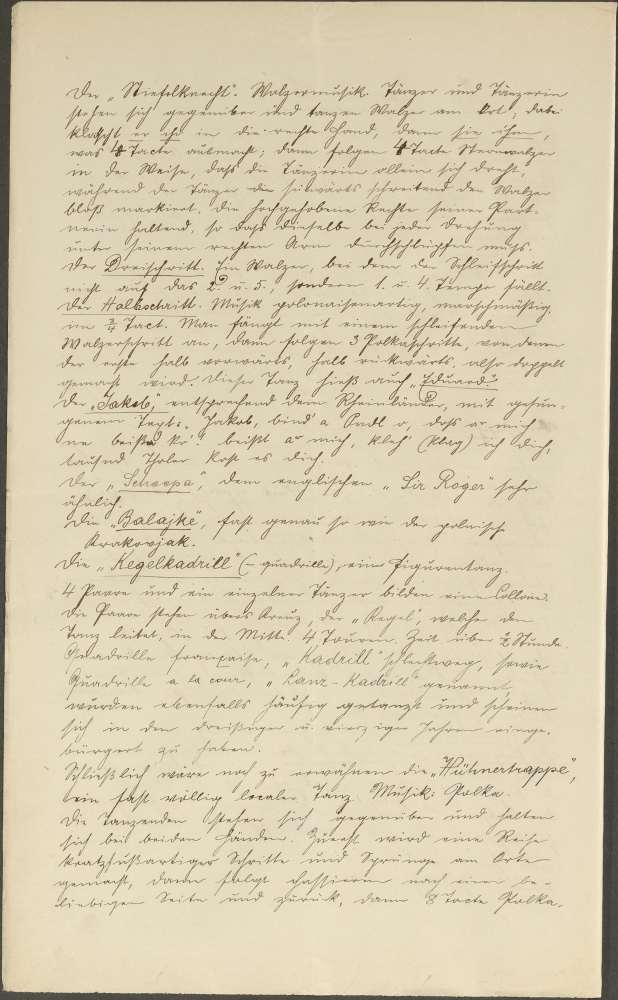 Der „Stiefelknecht“. Walzermusik. Tänzer und Tänzerin
stehen sich gegenüber und tanzen Walzer am Ort; dabei
klatscht er ihr in die rechte Hand, dann sie ihm,
was 4 Tacte ausmacht; dann folgen 4 Tacte
in der Weise, daß die Tänzerin allein sich dreht,
während der Tänzer seitwärts schreitend den Walzer
bloß markiert, die hochgehobene Rechte seiner Part-
nerin haltend, so daß dieselbe bei jeder Drehung
unter seinem rechten Arm durchschlüpfen muß.
Der Dreischritt. Ein Walzer, bei dem der Schleifschritt
nicht auf das 2. u. 5., sondern 1. u. 4. Tempo fällt.
Der Halbschritt. Musik polonaisenartig, marschmäßig,
im 2/4 Tact. Man fängt mit einem schleifenden
Walzerschritt an, dann folgen 3 Polkaschritte, von denen
der erste halb vorwärts, halb rückwärts, also doppelt
gemacht wird. Dieser Tanz hieß auch „Eduard“.
Der „Jakob“, entsprechend dem Rheinländer, mit gesun-
genem Text: „Jakob, bind' a Bndl o, daß a mich
ne beißa ko'! beißt a mich, klah' (klag) ich dich,
tausnd Tholer kost es dich.
Der „Schaapa“, dem englischen „Sir Roger“ sehr
ähnlich.
Die „Balajke“, fast genau so wie der polnische
Krakowjak.
Die „Kegelkadrill“ (-quadrille), ein Figurentanz.
4 Paare und ein einzelner Tänzer bilden eine Collone.
Die Paare stehen übers Kreuz, der „Kegel“, welcher den
Tanz leitet, in der Mitte. 4 Touren. Zeit über ½ Stunde.
Quadrille française, „Kadrill“ schlechtweg, sowie
Quadrille a la cour, „Lanz-Kadrill“ genannt,
wurden ebenfalls häufig getanzt und scheinen
sich in den dreißiger u. vierziger Jahren einge-
bürgert zu haben.
Schließlich wäre noch zu erwähnen die „Hühnertrappe“,
ein fast völlig localer Tanz. Musik: Polka.
Die Tanzenden stehen sich gegenüber und halten
sich bei beiden Händen. Zuerst wird eine Reihe
kratzfußartiger Schritte und Sprünge am Orte
gemacht, dann folgt chassieren nach einer be-
liebigen Seite und zurück, dann 8 Tacte Polka.